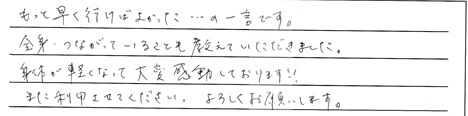 もっと早く行けばよかった…の一言です。
全身つながっていることも教えていただきました。
身体が軽くなって大変感動しております!!
また利用させてください。よろしくお願いします。